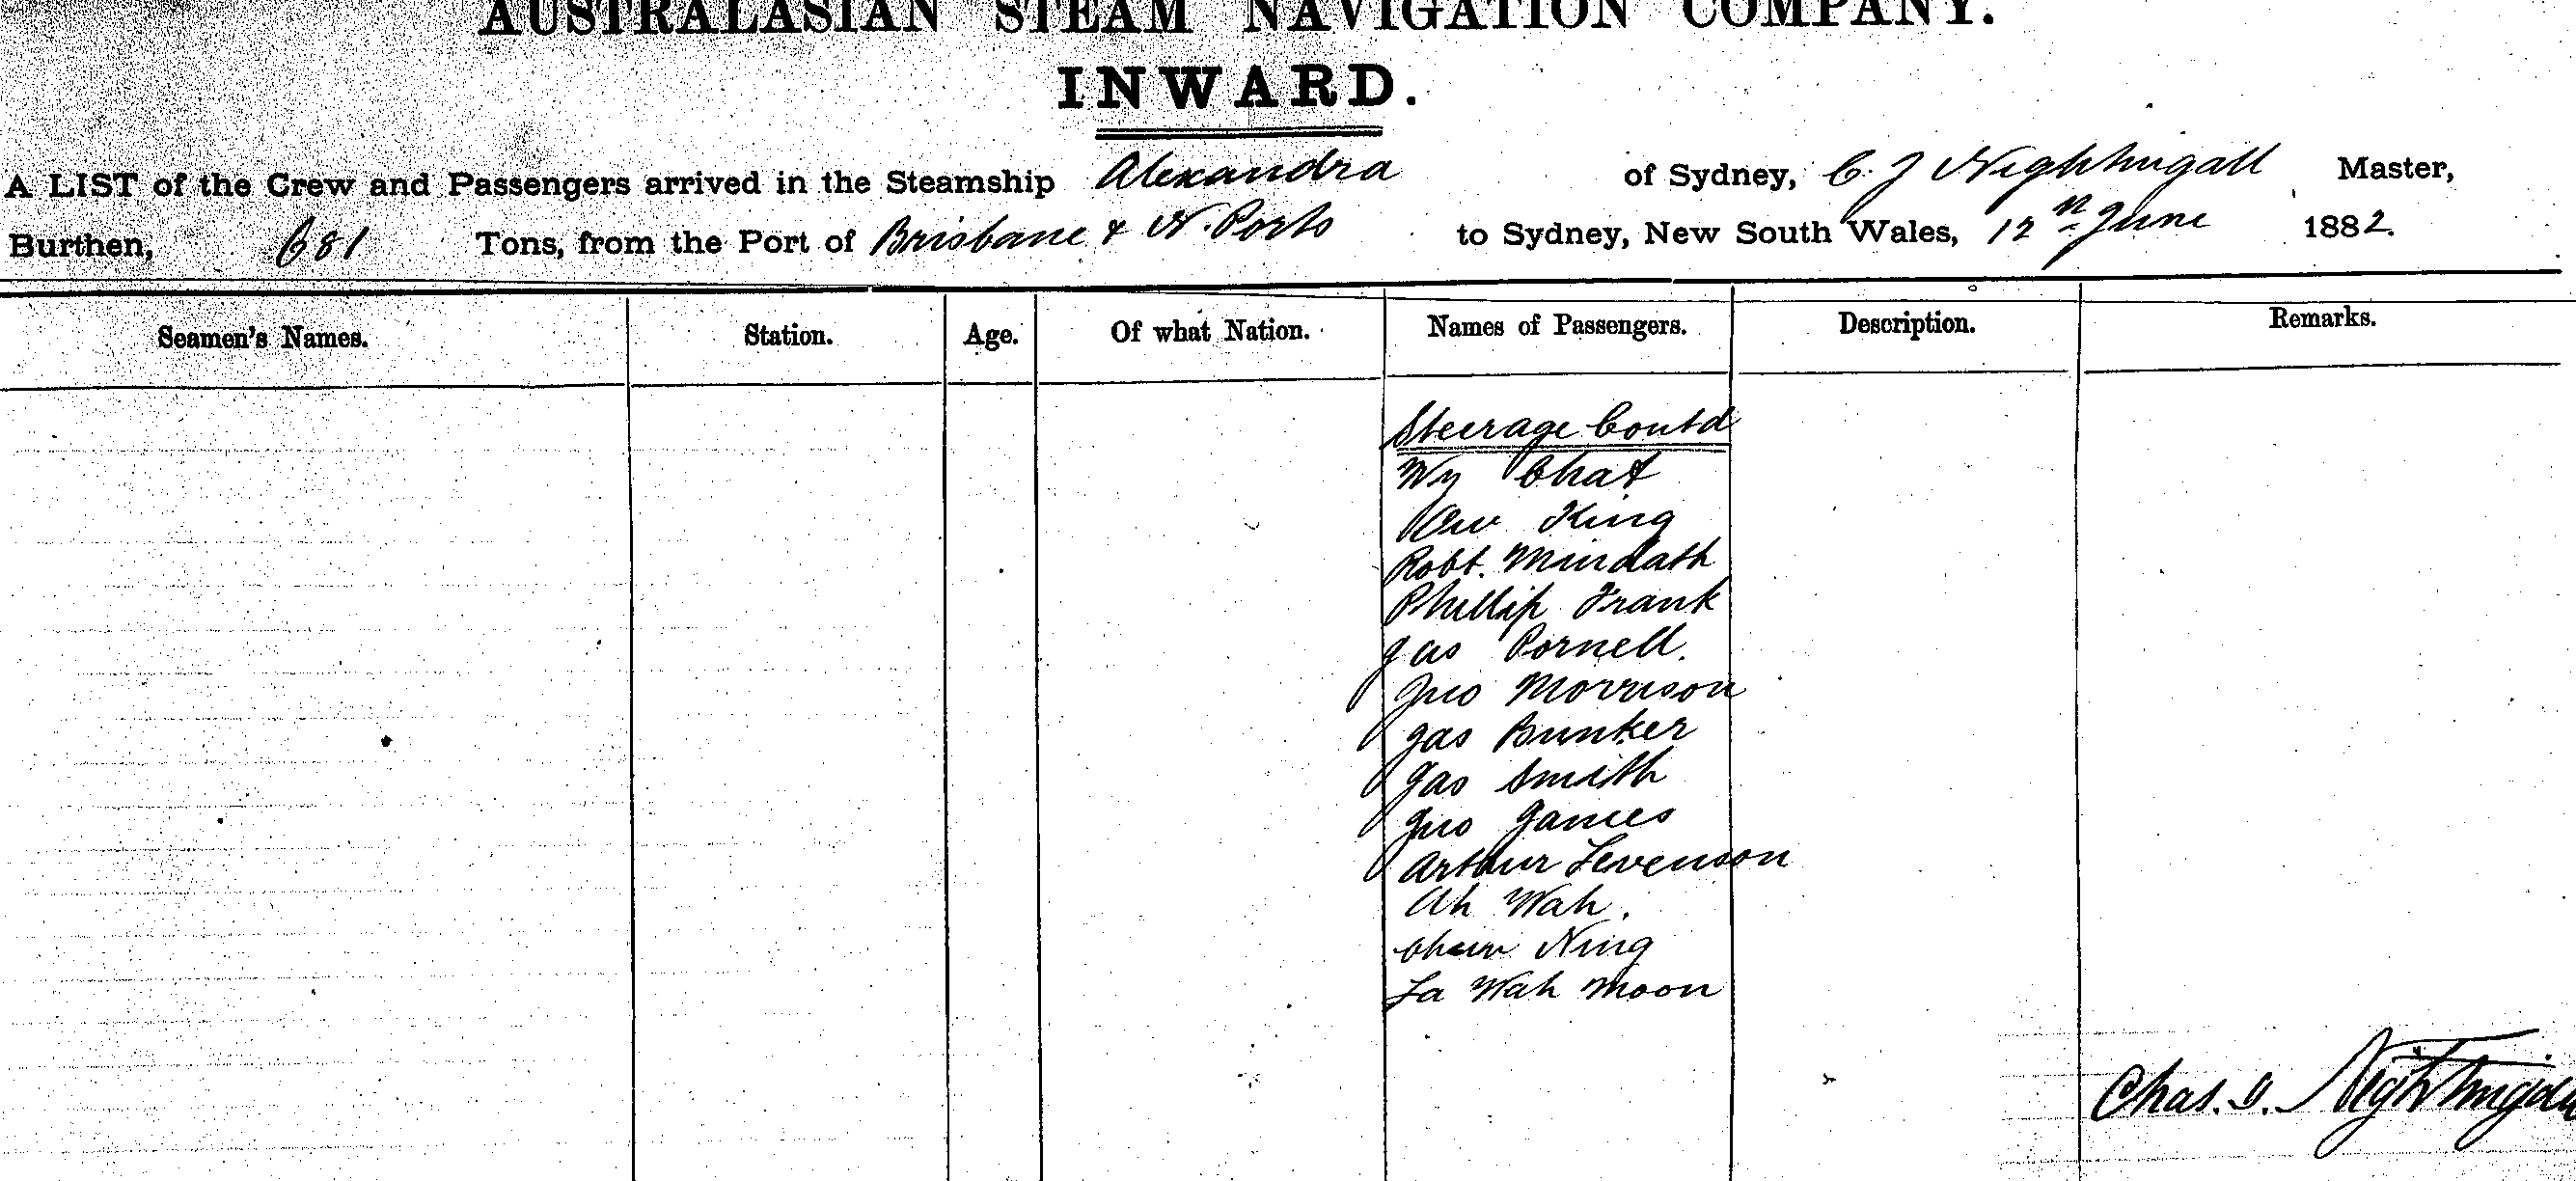 AUSTRALASIAN STEAM NAVIGATION COMPANY.
INWARD.
A LIST of the Crew and Passengers arrived in the Steamship Alexandra of Sydney, C. J Nightingall Master,
Burthen, 681 Tons, from the Port of Brisbane & N. Ports to Sydney, New South Wales, 12th June 1882.
Seamen's Names. Station. Age. Of what Nation. Names of Passengers. Description. Remarks.
Steerage Contd
Wy Chat
King
Robt. Mindath
Phillip Frank
Jas Pornell.
Jno Morrison
Jas Bunker
Jas Smith
Jno James
Arthur Levenson
Ah Wah.
Ning
La Wah Moon
Chas. J. Nightingall